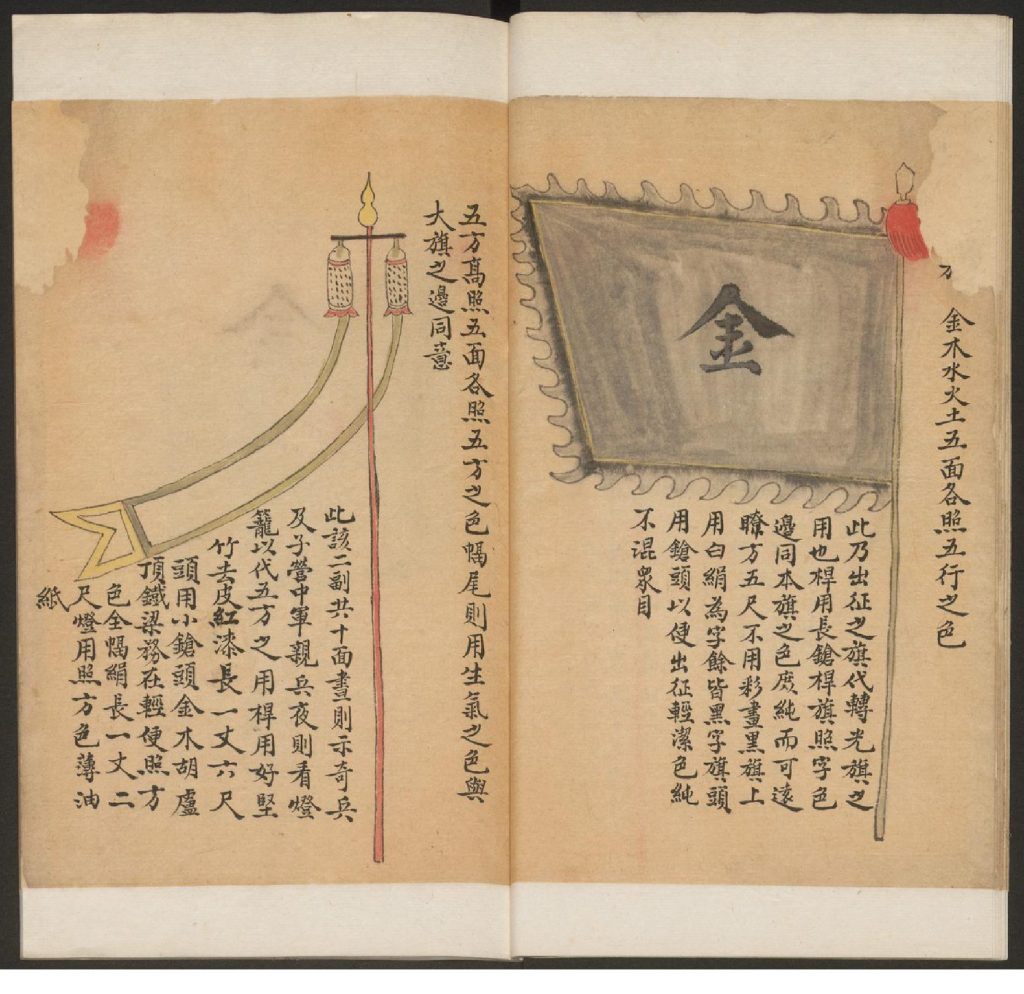 金木水火土五面各照五行之色
金
此乃出征之旗代轉光旗之
用也桿用長鎗桿旗照字色
邊同本旗之色庻純而可遠
瞭方五尺不用彩畫黑旗上
用白絹為字餘皆黑字旗頭
用鎗頭以便出征輕潔色純
不混衆目
五方高照五面各照五方之色幅尾則用生氣之色與
大旗之邊同意
此該二副共十面晝則示奇兵
及子營中軍親兵夜則看燈
籠以代五方之用桿用好堅
竹去皮紅漆長一丈六尺
頭用小鎗頭金木胡盧
頂鐵梁務在輕便照方
色全幅絹長一丈二
尺燈用照方色薄油
紙